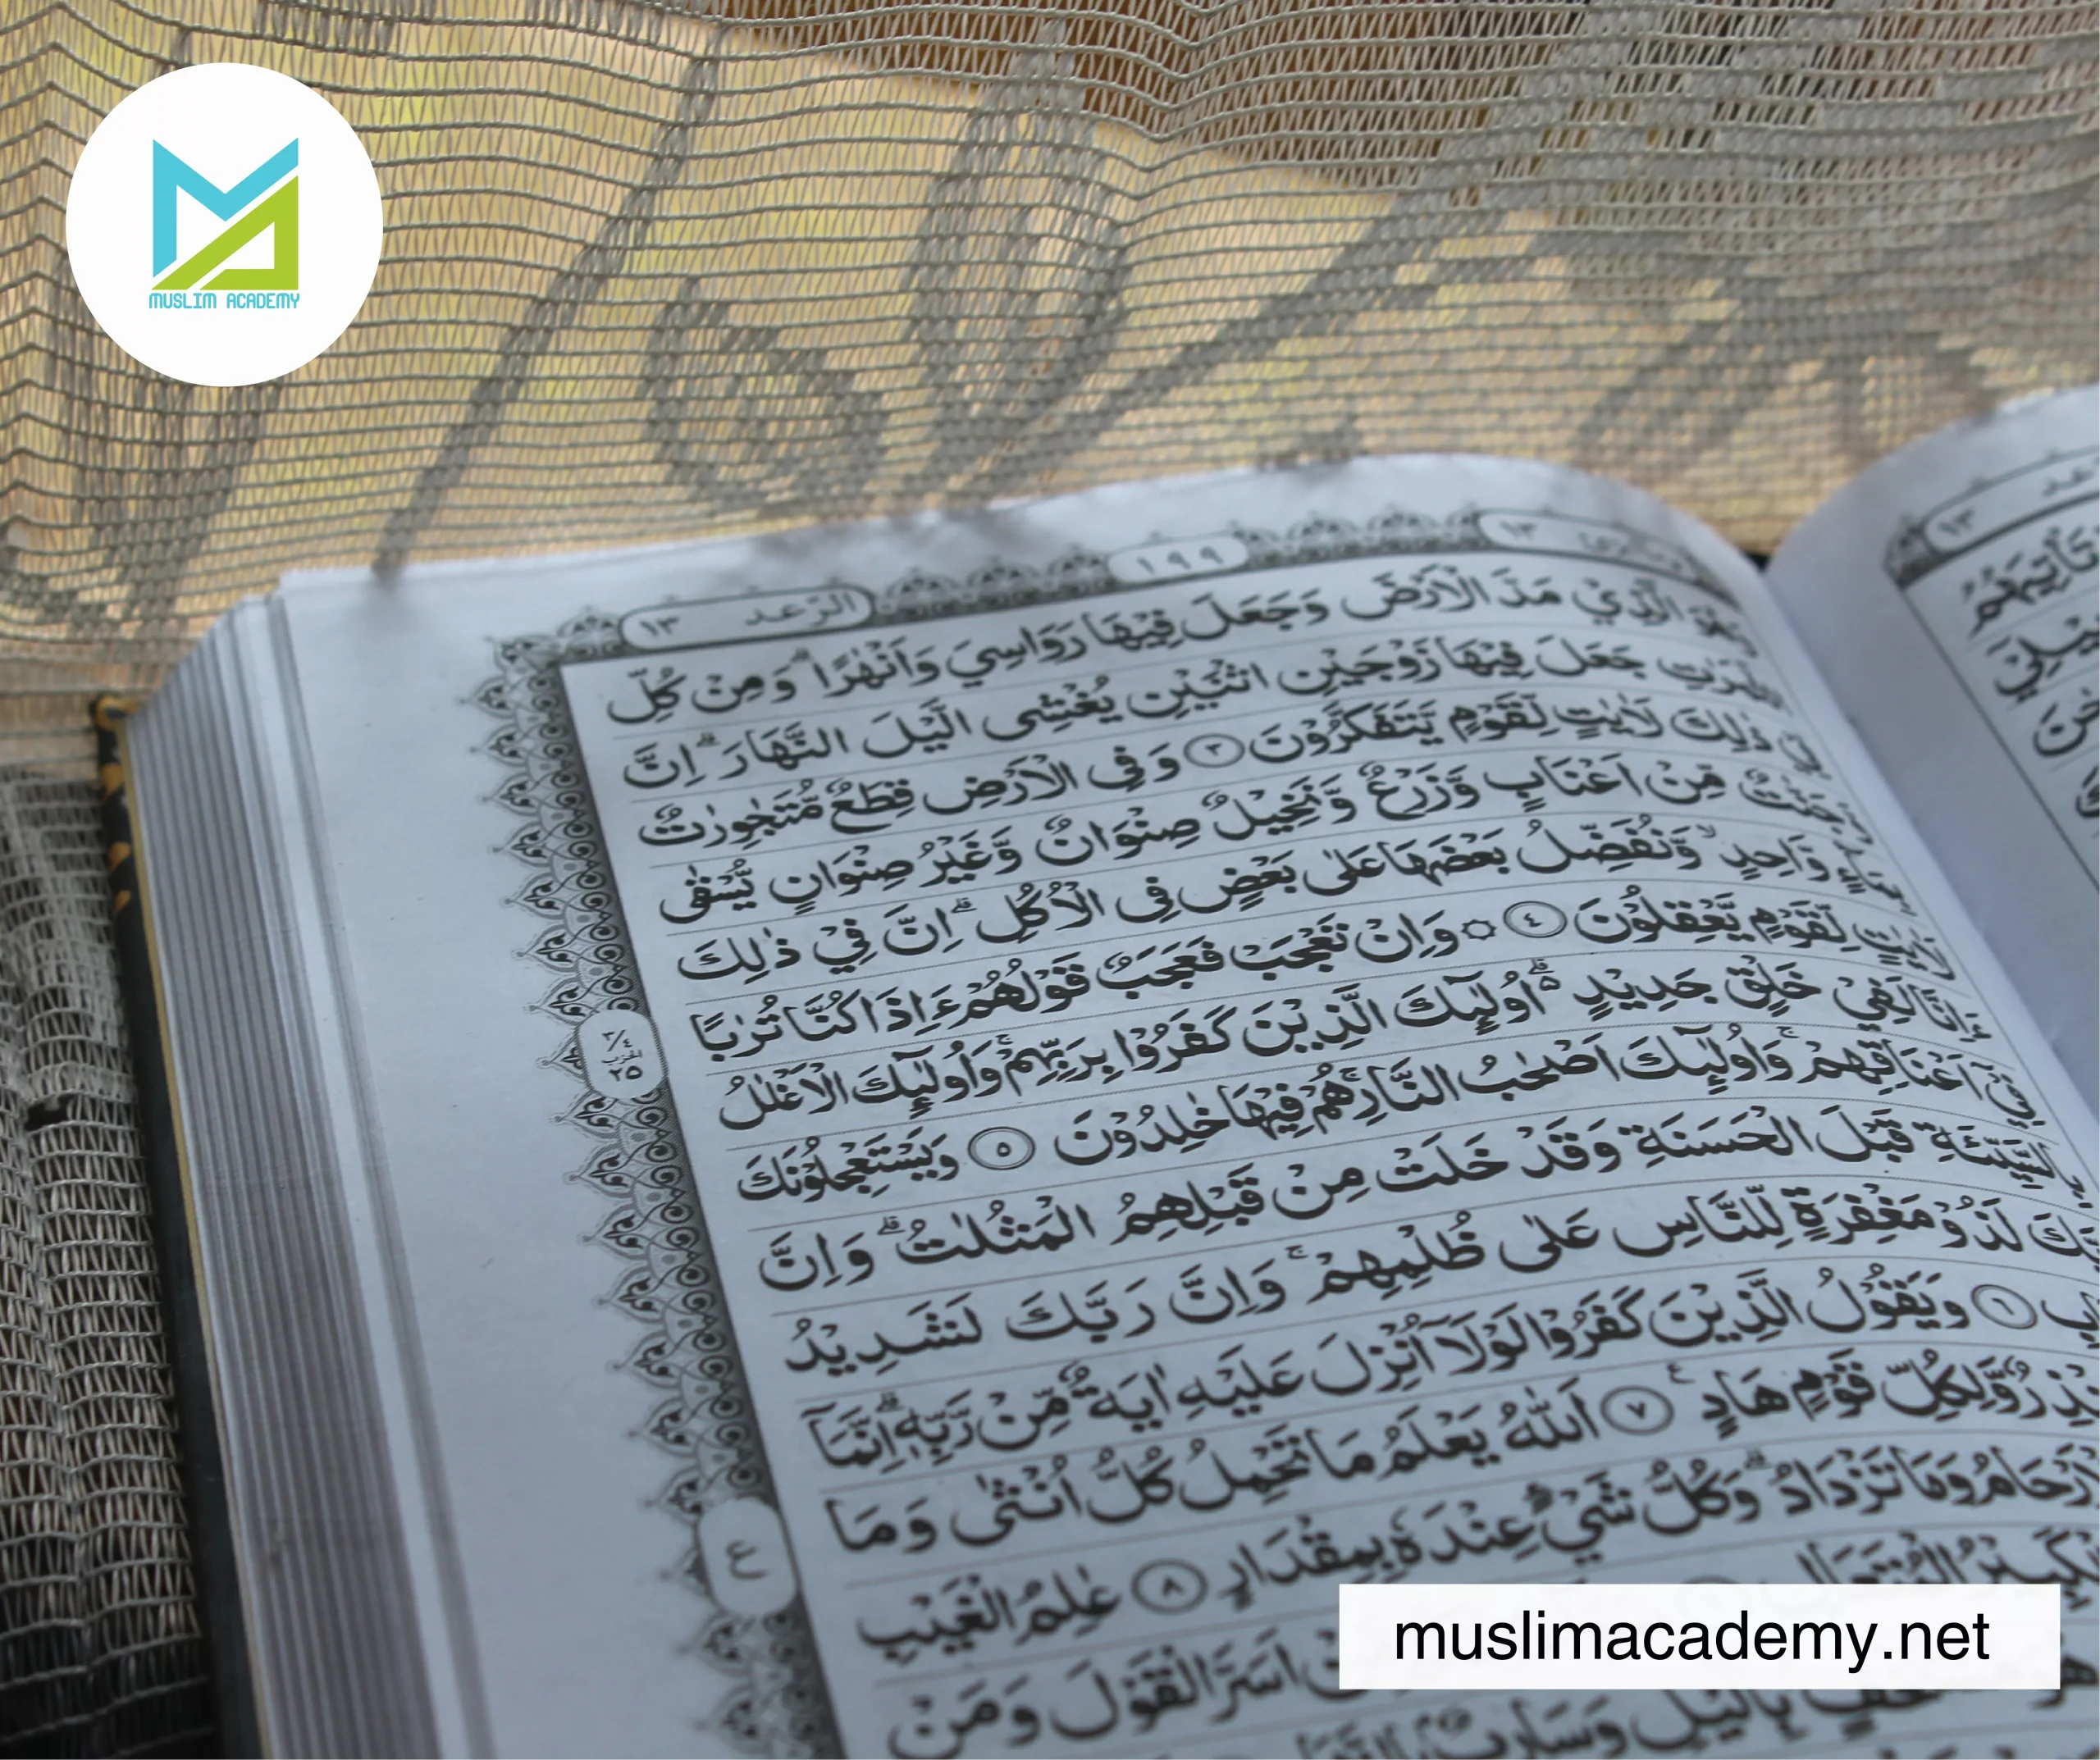 MUSLIM ACADEMY
١٣
١٩٩
الرّعد ١٣
الَّذِيْ مَدَّ الْاَرْضَ وَجَعَلَ فِيْهَا رَوَاسِيَ وَاَنْهٰرًا ۗ وَمِنْ كُلِّ
جَعَلَ فِيْهَا زَوْجَيْنِ اثْنَيْنِ يُغْشِى الَّيْلَ النَّهَارَ ۗ اِنَّ
ذٰلِكَ لَاٰيٰتٍ لِّقَوْمٍ يَّتَفَكَّرُوْنَ ٣ وَفِى الْاَرْضِ قِطَعٌ مُّتَجٰوِرٰتٌ
مِّنْ اَعْنَابٍ وَّزَرْعٌ وَّنَخِيْلٌ صِنْوَانٌ وَّغَيْرُ صِنْوَانٍ يُّسْقٰى
وَّاحِدٍ ۙ وَّنُفَضِّلُ بَعْضَهَا عَلٰى بَعْضٍ فِى الْاُكُلِ ۗ اِنَّ فِيْ ذٰلِكَ
لِّقَوْمٍ يَّعْقِلُوْنَ ٤ ۞ وَاِنْ تَعْجَبْ فَعَجَبٌ قَوْلُهُمْ ءَاِذَا كُنَّا تُرٰبًا
ءَاِنَّا لَفِيْ خَلْقٍ جَدِيْدٍ ەۗ اُولٰۤىِٕكَ الَّذِيْنَ كَفَرُوْا بِرَبِّهِمْ ۚ وَاُولٰۤىِٕكَ الْاَغْلٰلُ
فِيْٓ اَعْنَاقِهِمْ ۚ وَاُولٰۤىِٕكَ اَصْحٰبُ النَّارِ ۚ هُمْ فِيْهَا خٰلِدُوْنَ ٥ وَيَسْتَعْجِلُوْنَكَ
بِالسَّيِّئَةِ قَبْلَ الْحَسَنَةِ وَقَدْ خَلَتْ مِنْ قَبْلِهِمُ الْمَثُلٰتُ ۗ وَاِنَّ
لَذُوْ مَغْفِرَةٍ لِّلنَّاسِ عَلٰى ظُلْمِهِمْ ۚ وَاِنَّ رَبَّكَ لَشَدِيْدُ
٦ وَيَقُوْلُ الَّذِيْنَ كَفَرُوْا لَوْلَآ اُنْزِلَ عَلَيْهِ اٰيَةٌ مِّنْ رَّبِّهٖ ۗ اِنَّمَآ
وَّلِكُلِّ قَوْمٍ هَادٍ ۚ ٧ اَللّٰهُ يَعْلَمُ مَا تَحْمِلُ كُلُّ اُنْثٰى وَمَا
وَمَا تَزْدَادُ ۗ وَكُلُّ شَيْءٍ عِنْدَهٗ بِمِقْدَارٍ ٨ عٰلِمُ الْغَيْبِ
اَسَرَّ الْقَوْلَ وَمَنْ
بِالَّيْلِ وَسَارِبٌ
٣/٤
الحزب
٢٥
ع
١٣
muslimacademy.net